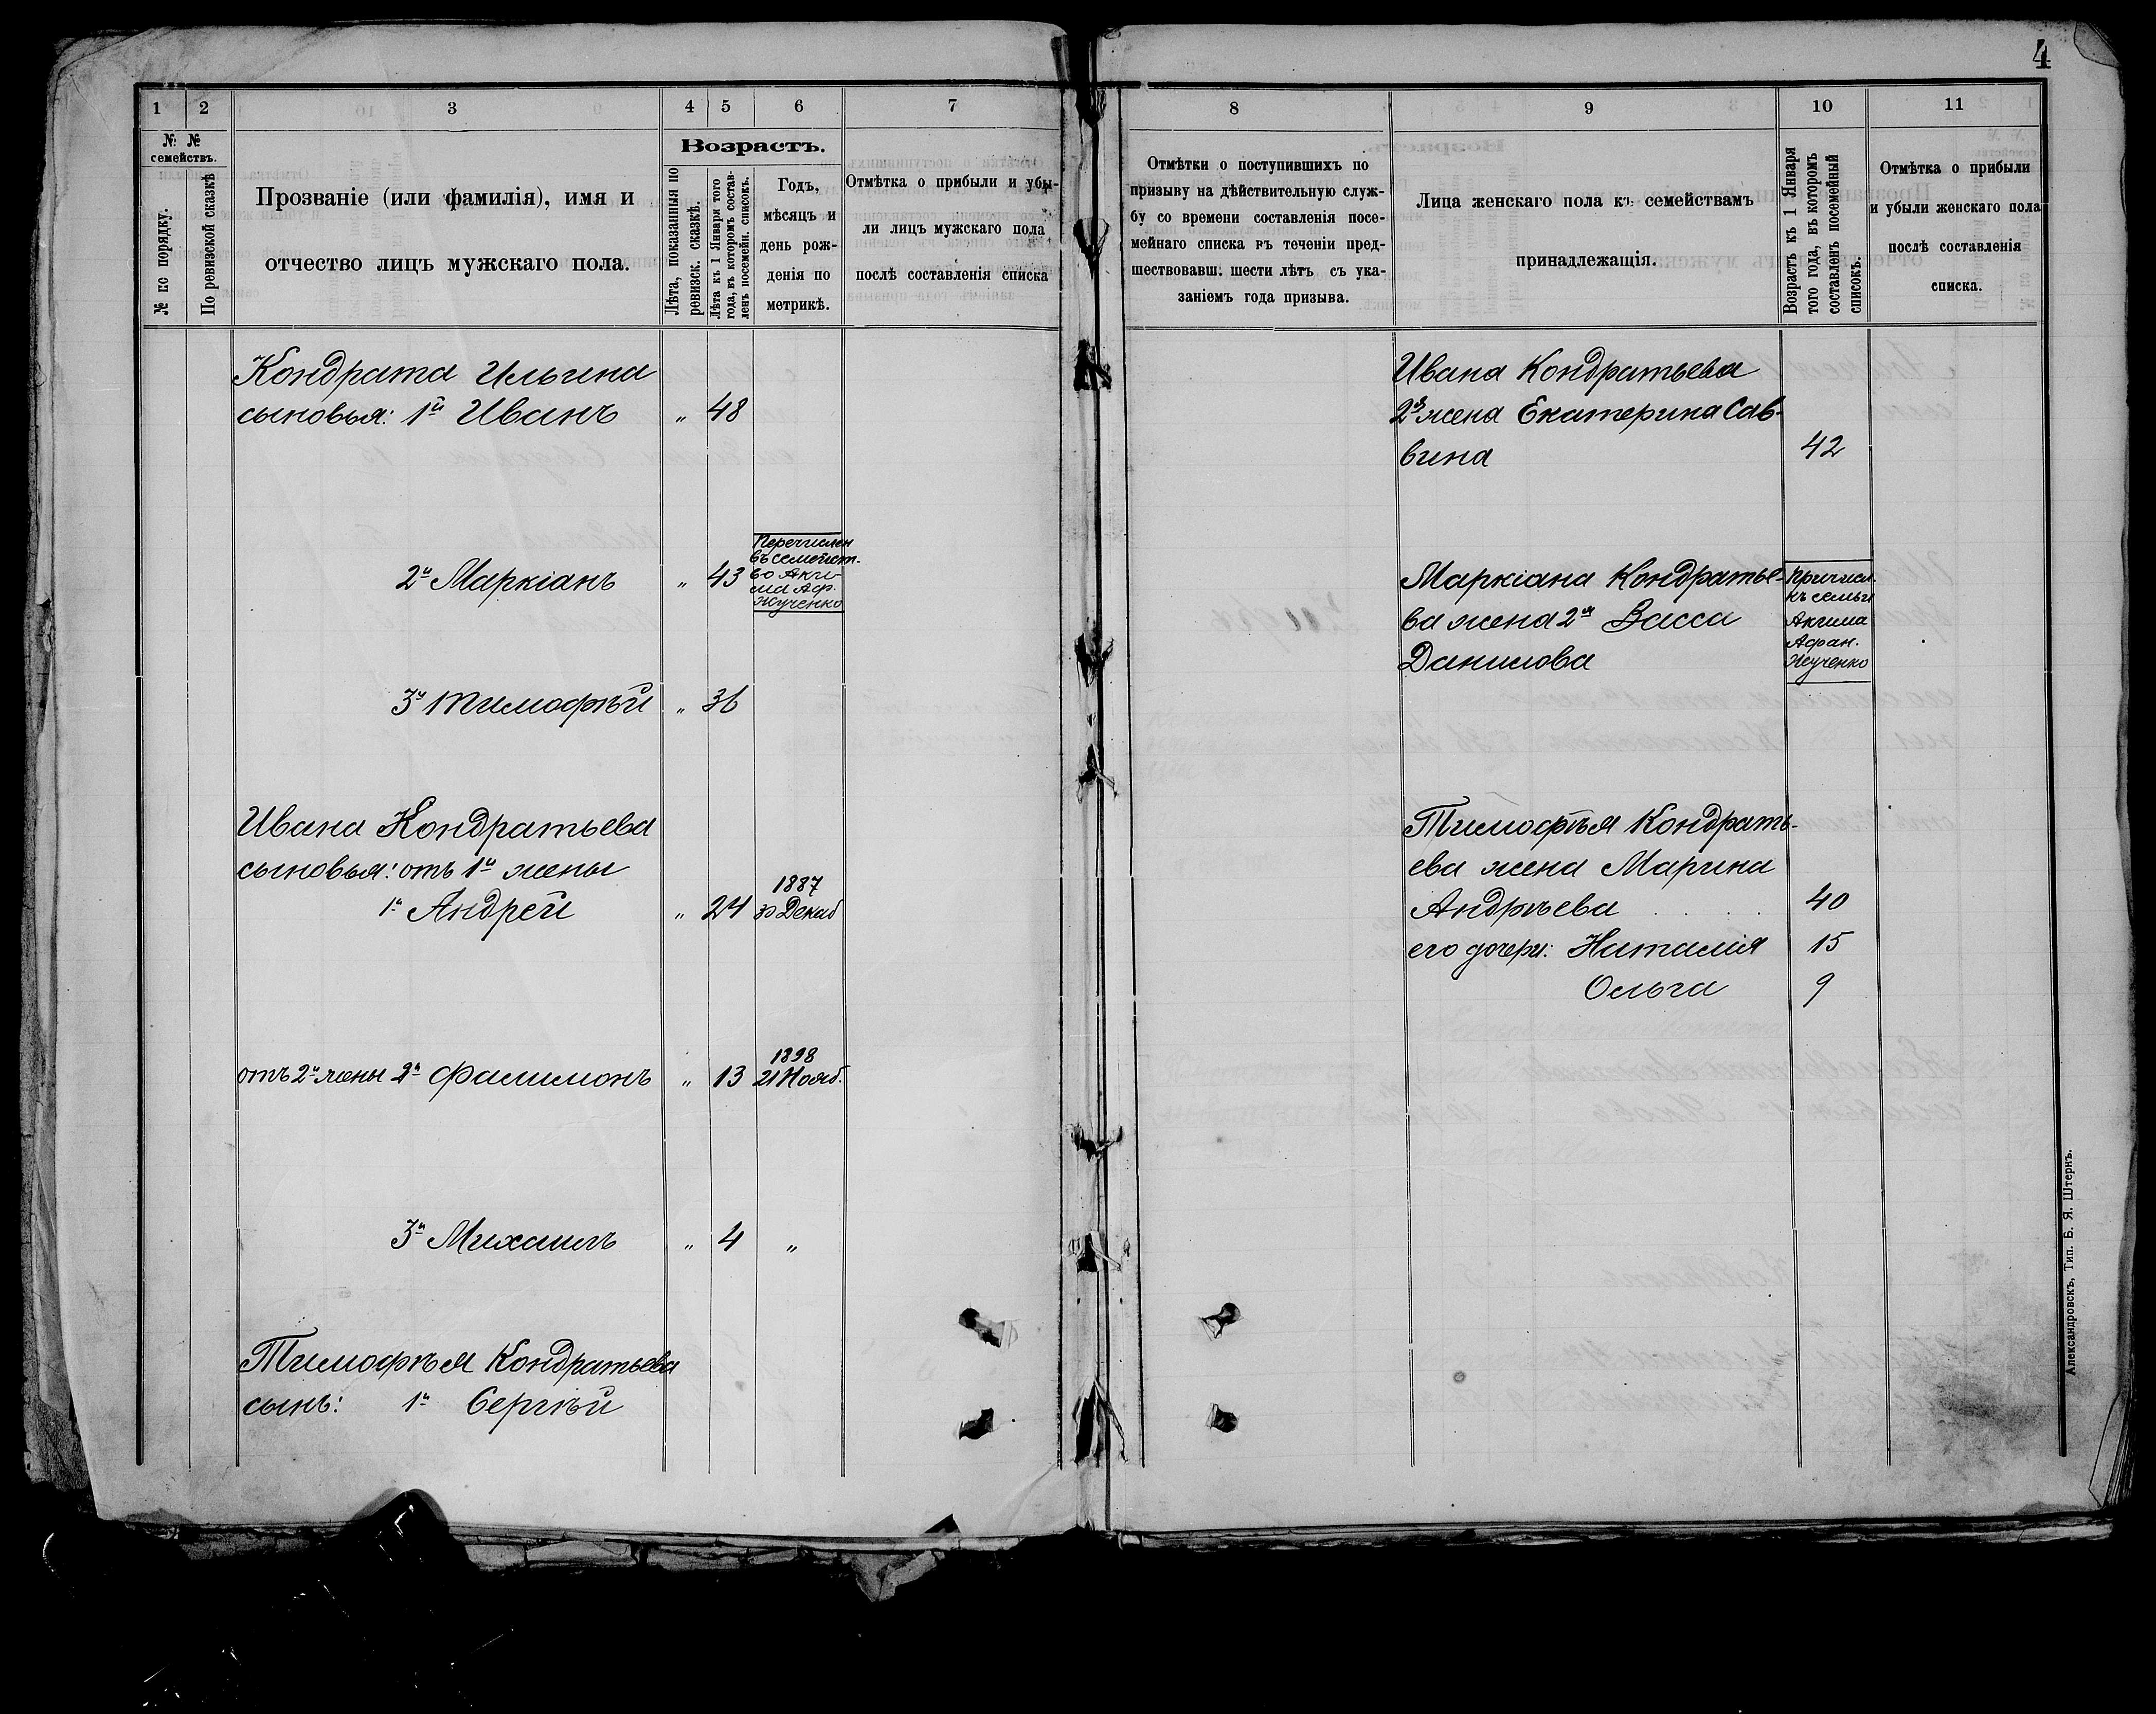 4
1 2 3 4 5 6 7
№ №
семействъ.
№ по порядку.
По ревизской сказкѣ
Прозваніе (или фамилія), имя и
отчество лицъ мужскаго пола.
Возрастъ.
Лѣта, показанныя по
ревизск. сказкѣ.
Лѣта къ 1 Января того
года, въ которомъ состав-
ленъ посемейн. списокъ.
Годъ,
мѣсяцъ и
день рож-
денія по
метрикѣ.
Отмѣтка о прибыли и убы-
ли лицъ мужскаго пола
послѣ составленія списка
Кондрата Ильина
сыновья: 1й Иванъ „ 48
2й Маркіанъ „ 43
Перечислен
въ семейст-
во Аки-
ма Аф.
Жученко
3й Тимофѣй „ 36
Ивана Кондратьева
сыновья: отъ 1й жены
1й Андрей „ 24 1887
30 Декаб
отъ 2й жены 2й Филимонъ „ 13 1898
21 Нояб.
3й Михаилъ „ 4 „
Тимофѣя Кондратьева
сынъ: 1й Сергѣй
8 9 10 11
Отмѣтки о поступившихъ по
призыву на дѣйствительную служ-
бу со времени составленія посе-
мейнаго списка въ теченіи пред-
шествовавш. шести лѣтъ съ ука-
заніемъ года призыва.
Лица женскаго пола къ семействамъ
принадлежащія.
Возрастъ къ 1 Января
того года, въ которомъ
составленъ посемейный
списокъ.
Отмѣтка о прибыли
и убыли женскаго пола
послѣ составленія
списка.
Ивана Кондратьева
2я жена Екатерина Сав-
вина 42
Маркіана Кондратье-
ва жена 2я Васса
Данилова
Причисл.
къ семьи
Акима
Афан.
Жученко
Тимофѣя Кондрать-
ева жена Марина
Андрѣева 40
его дочери: Наталія 15
Ольга 9
Александровскъ, Тип. Б. Я. Штернъ.